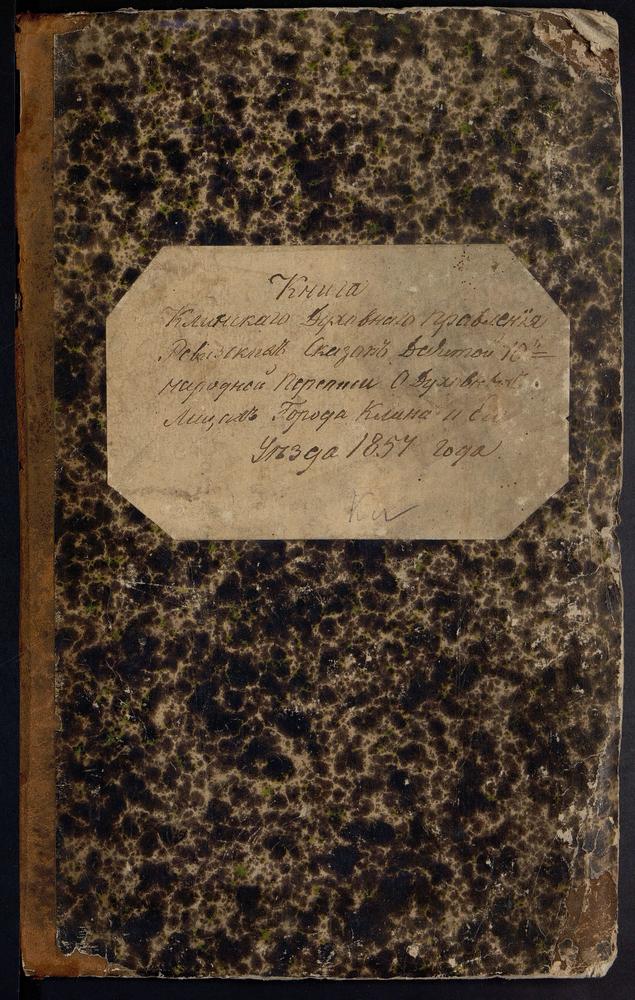 Книга
Клинскаго Духовнаго Правленія
Ревизскихъ Сказокъ Девятой 10й
народной Переписи О Духовныхъ
Лицахъ Города Клина и Его
Уѣзда 1857 года
Кл